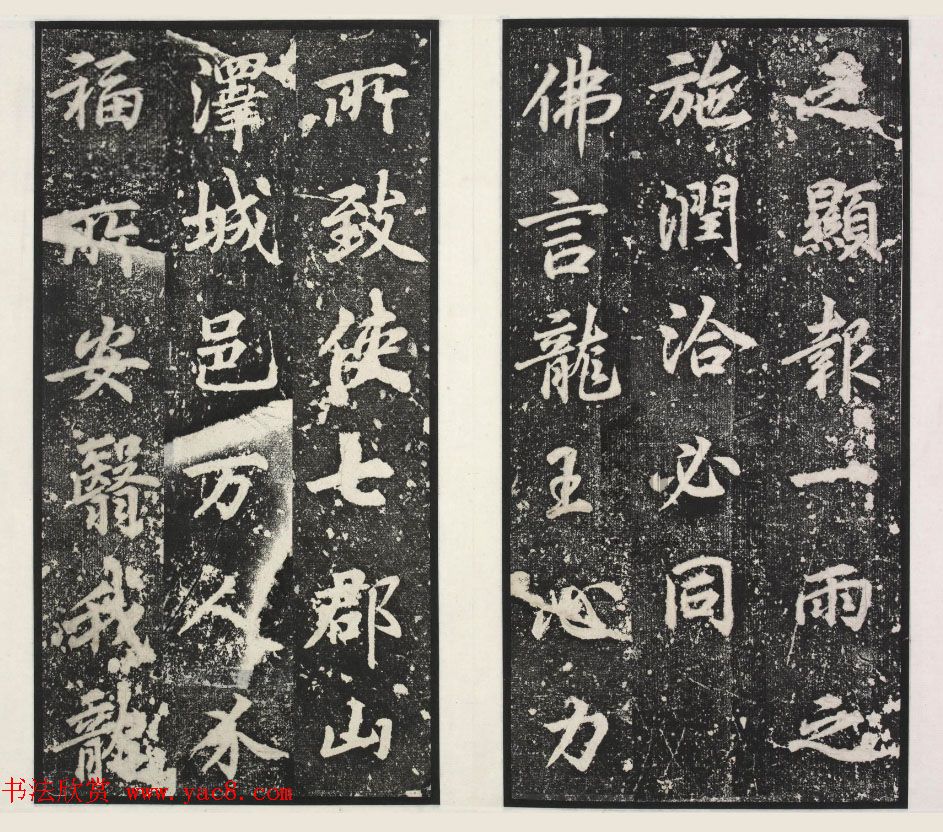 之顯報一雨之
施潤洽必同
佛言龍王心力
所致使七郡山
澤城邑万人介
福所安翳我龍
书法欣赏 www.yac8.com